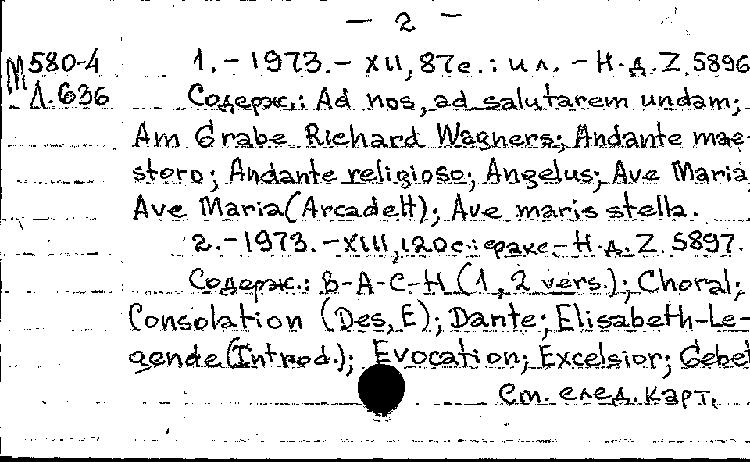 — 2 —
М580-4 1. – 1973. – XII, 87с.: ил. – Н.д. Z. 5896
Л.636 Содерж.: Ad nos, ad salutarem undam;
Am Grabe Richard Wagners; Andante mae-
storo; Andante religioso; Angelus; Ave Maria,
Ave Maria (Arcadelt); Ave maris stella.
2. – 1973. – XIII, 120с.: факс – Н.д. Z. 5897.
Содерж.: B-A-C-H (1, 2 vers.); Choral;
Consolation (Des, E); Dante; Elisabeth-Le-
gende (Introd.); Evocation; Excelsior; Gebet
См. след. карт.